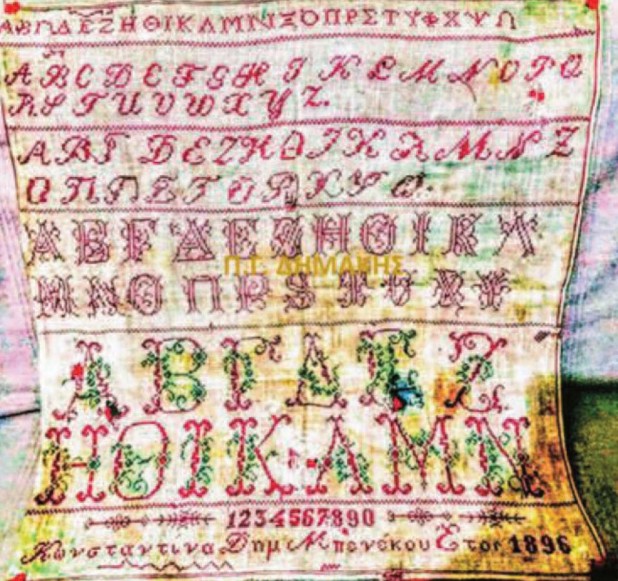 ΑΒΓΔΕΖΗΘΙΚΛΜΝΞΟΠΡΣΤΥΦΧΨΩ
A B C D E F G H I K L M N O P Q
R S T U V W X Y Z.
Α Β Γ Δ Ε Ζ Η Θ Ι Κ Λ Μ Ν Ξ
Ο Π Ρ Σ Τ Υ Φ Χ Ψ Ω.
Α Β Γ Δ Ε Ζ Η Θ Ι Κ Λ
Μ Ν Ο Π Ρ Σ Τ Υ Χ Ψ
Π.Γ. ΔΗΜΑΚΗΣ
Α Β Γ Δ Ε Ζ
Η Θ Ι Κ Λ Μ Ν
1234567890
Κωνσταντινα Δημ Μπονεκου Ετος 1896